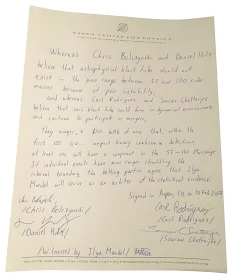 ASPEN CENTER FOR PHYSICS
Whereas Chris Belczynski and Daniel Holz
believe that astrophysical black holes should not
exist in the mass range between 55 and 130 solar
masses because of pair instability,
and whereas Carl Rodriguez and Sourav Chatterjee
believe that such black holes will be found in dynamical environments
and continue to participate in mergers,
They wager a $100 with of wine that, within the
first 100 binary confidence detections,
at least one will have a component in the 55-130 Msun range.
If individual events have error ranges straddling the
interval boundary, the betting parties agree that Ilya
Mandel will serve as an arbiter of the statistical evidence.
Signed in Aspen, CO, on Feb 2017
/Chris Belczynski/
Carl Rodriguez
/Daniel Holz/
/Sourav Chatterjee/
/Witnessed by Ilya Mandel/